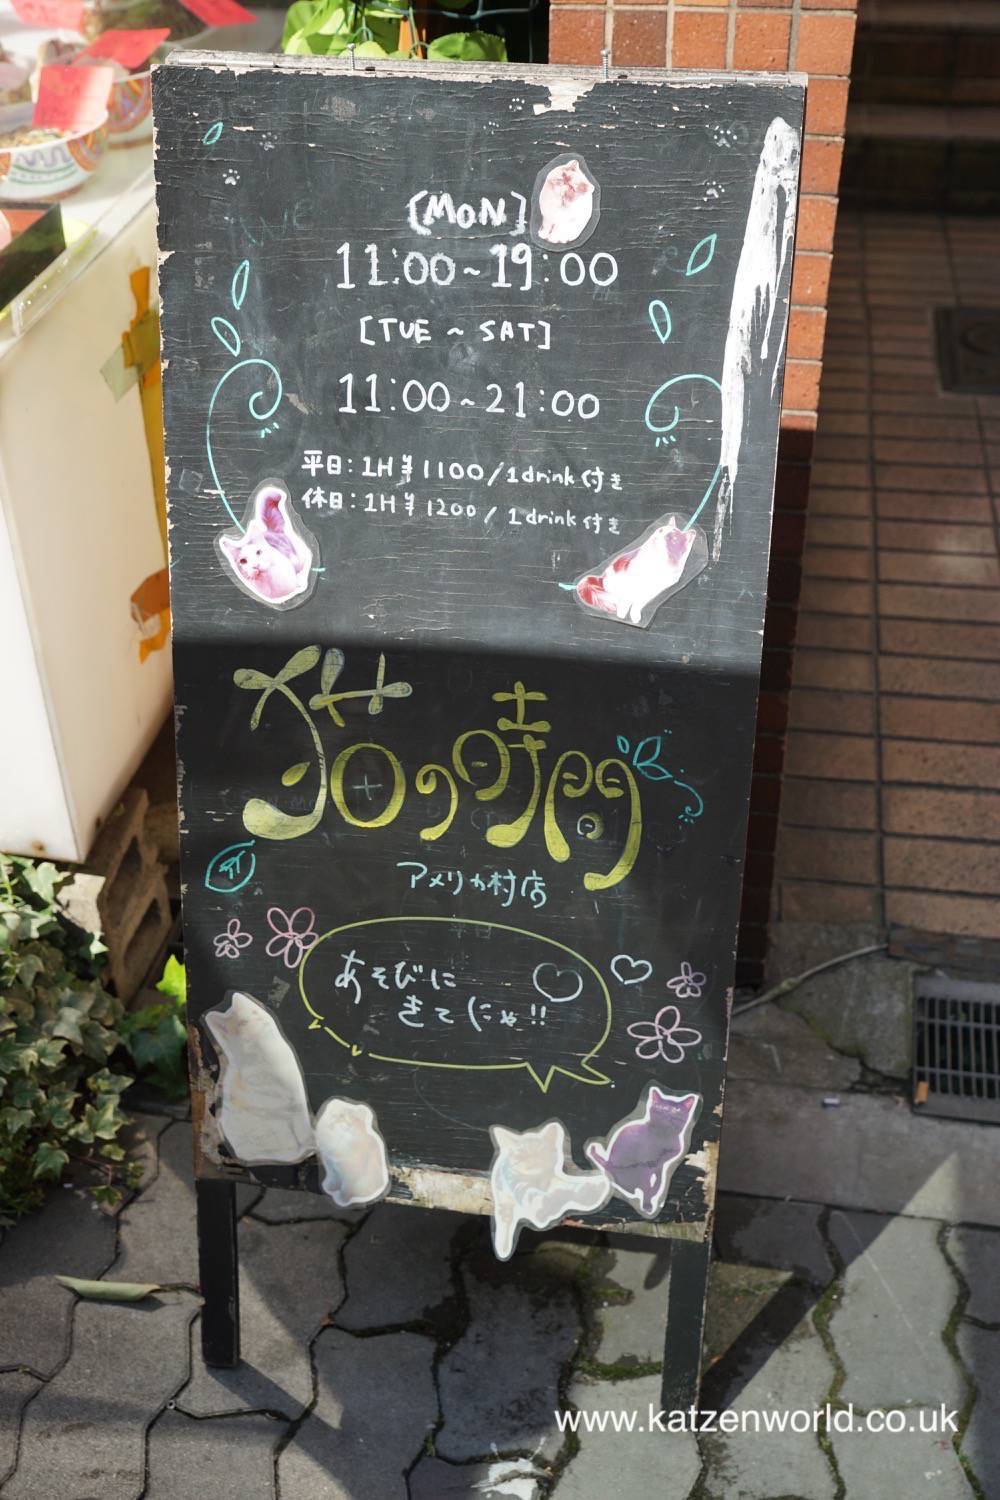 [MON]
11:00~19:00
[TUE ~ SAT]
11:00~21:00
平日: 1H ¥1100/1drink付き
休日: 1H ¥1200/1drink付き
猫の時間
アメリカ村店
あそびに
きてにゃ!!
www.katzenworld.co.uk